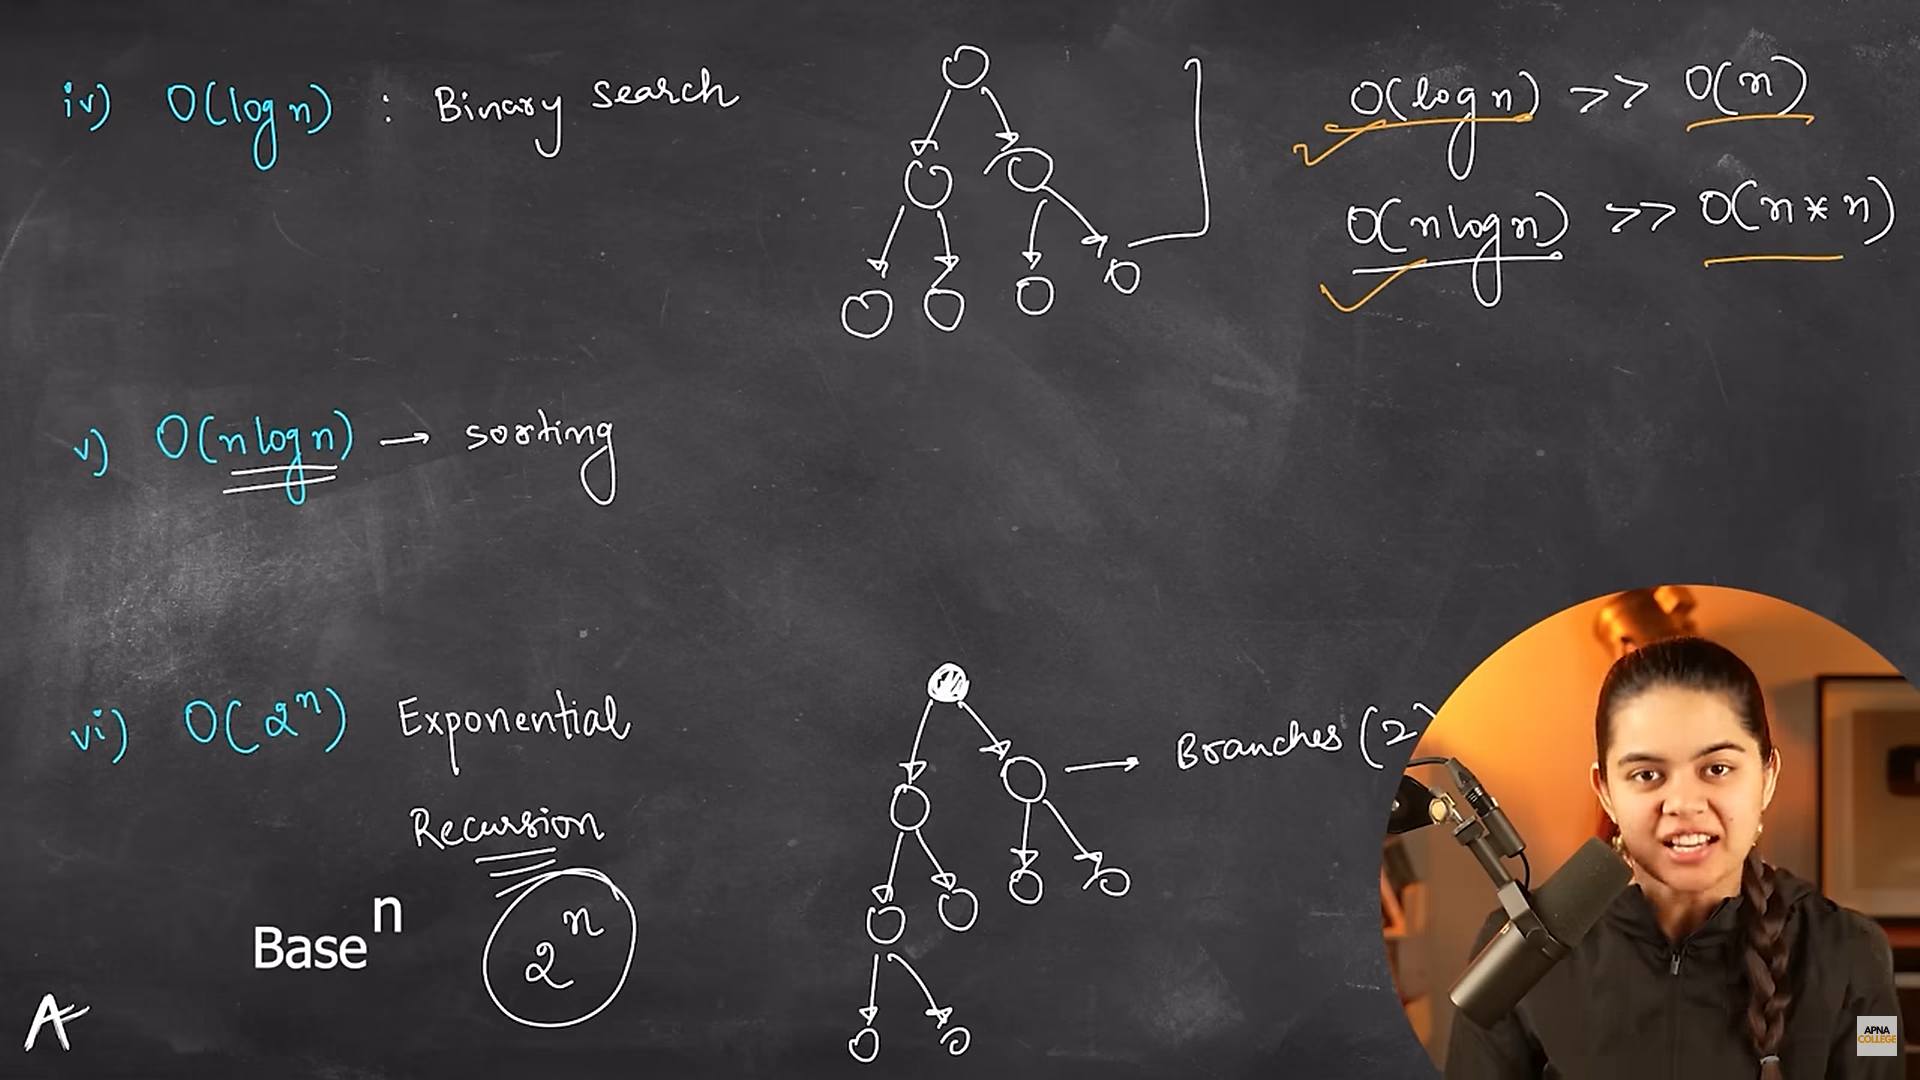 iv) O(log n) : Binary search
O(log n) >> O(n)
O(n log n) >> O(n * n)
v) O(n log n) → sorting
vi) O(2ⁿ) Exponential
→ Branches (2)
Recursion
Baseⁿ
2ⁿ
A
APNA
COLLEGE